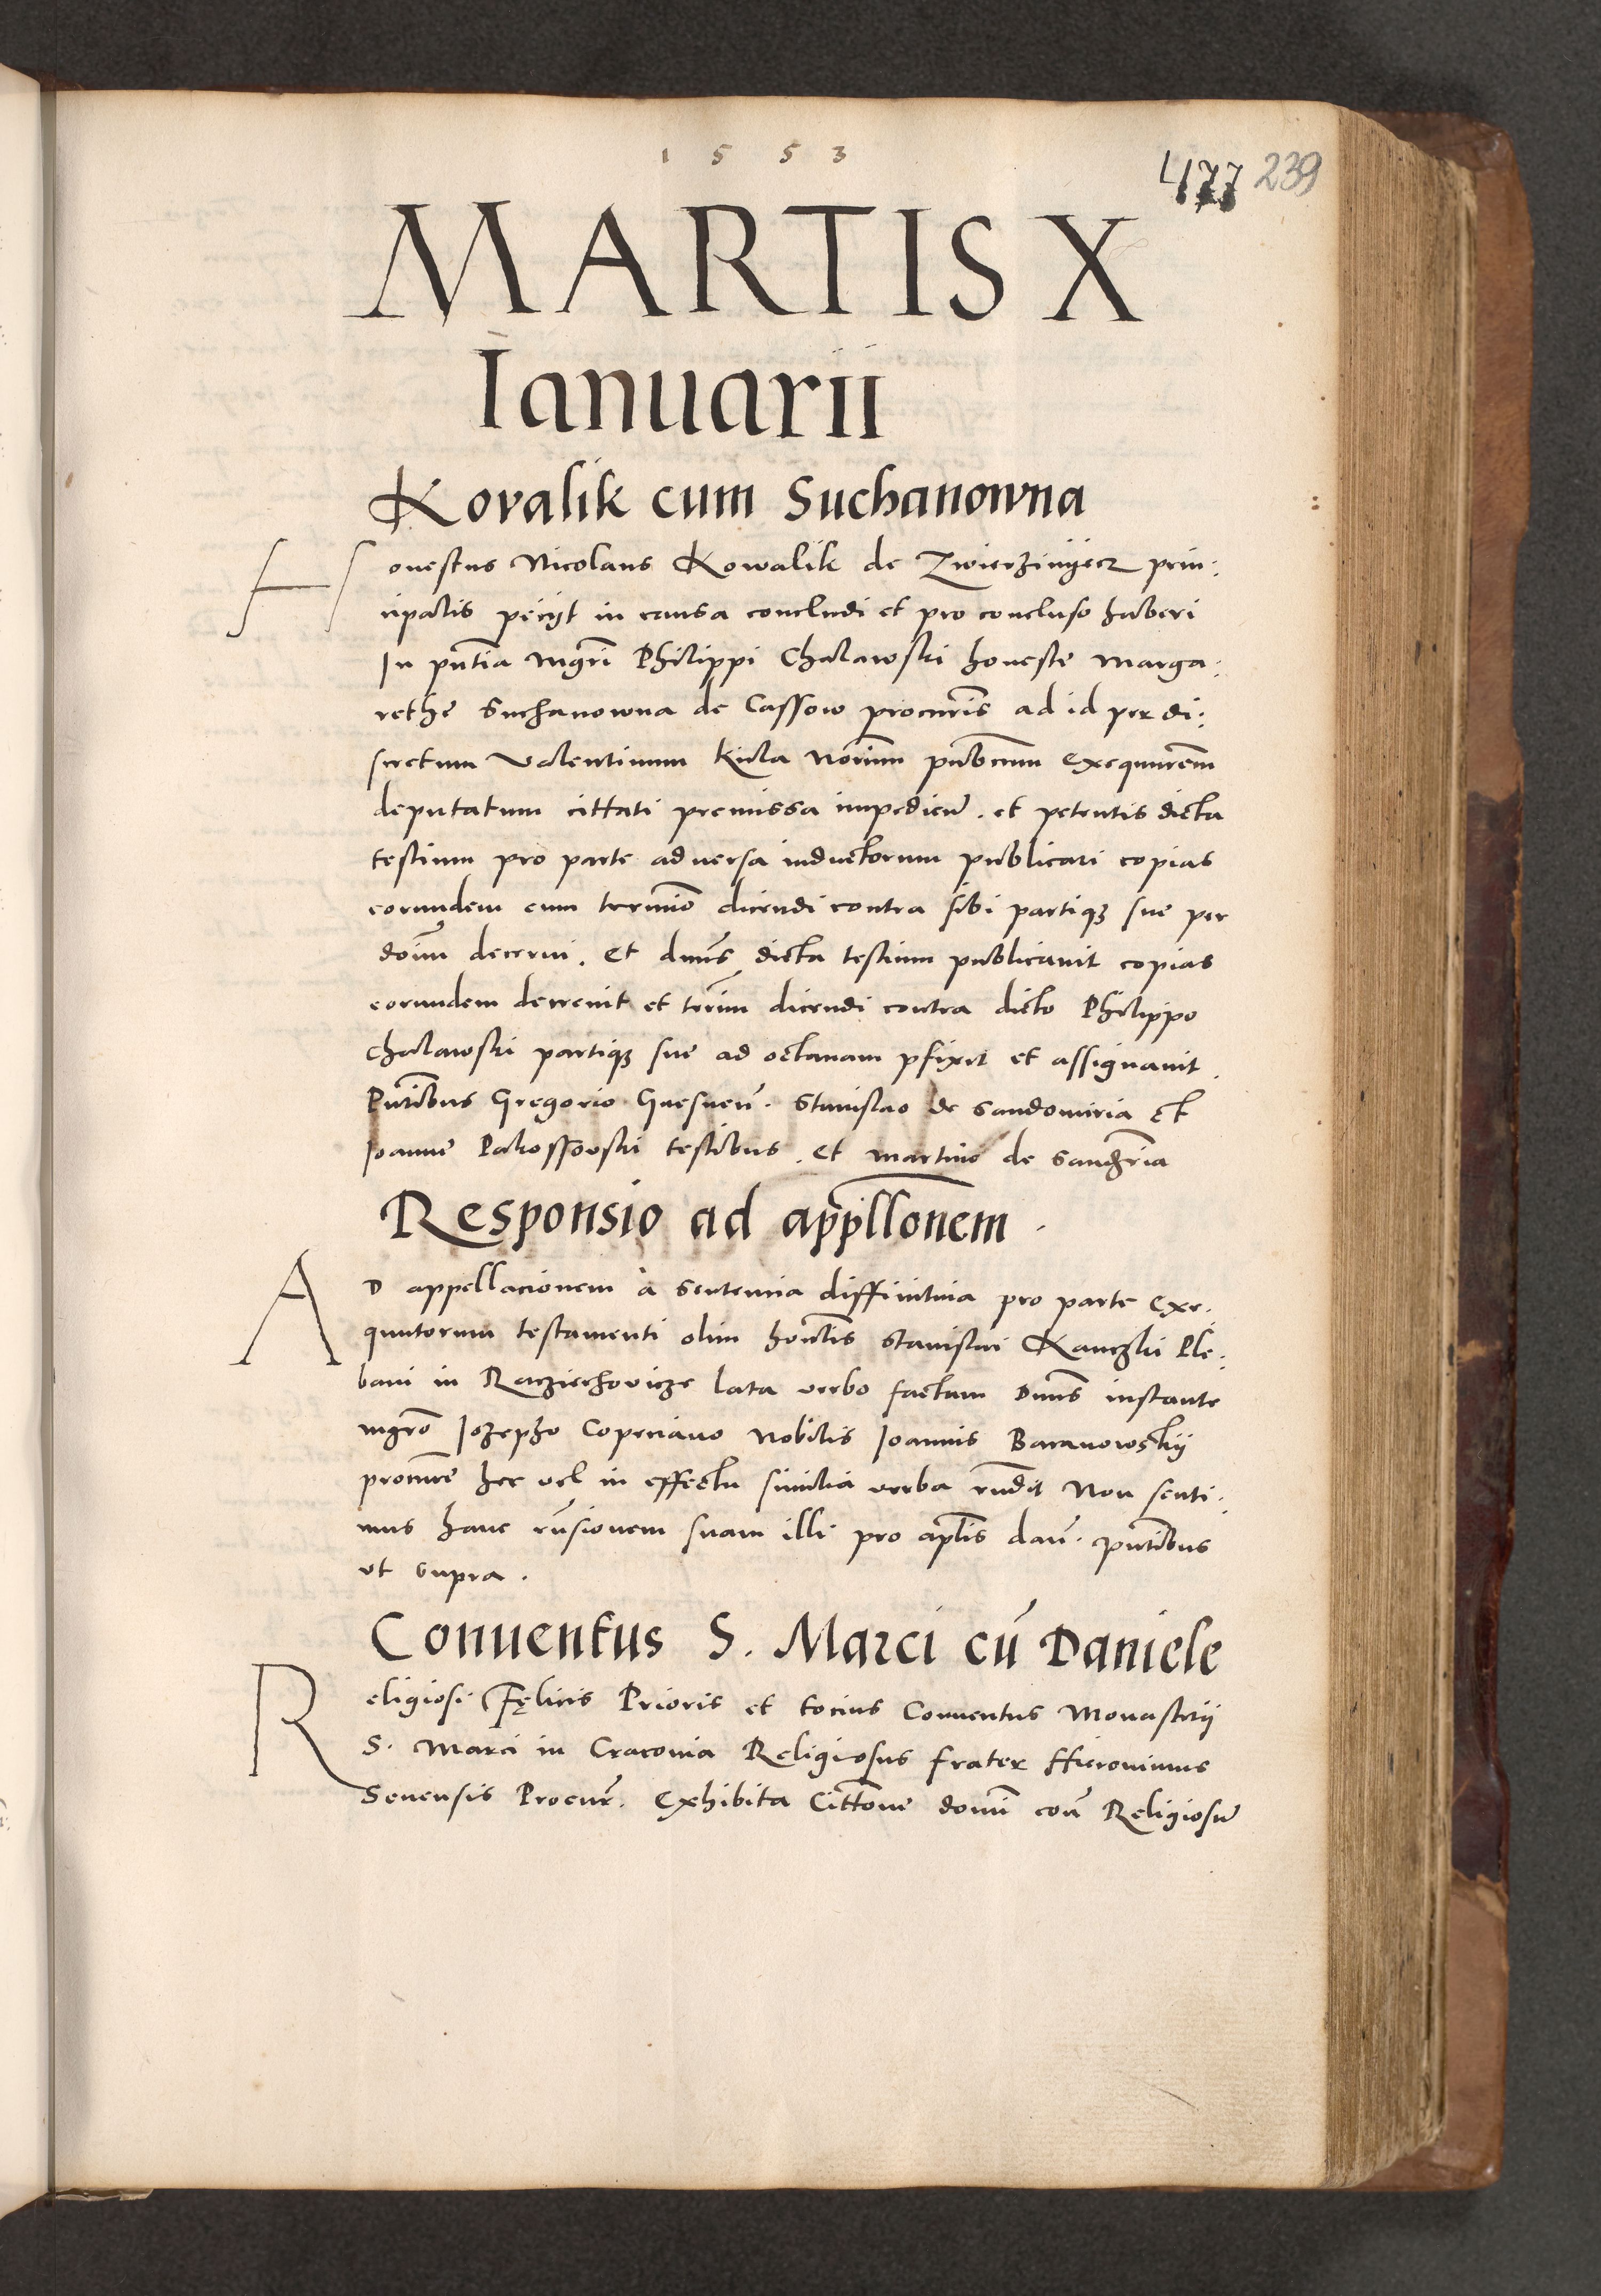 1 5 5 3
477 239
MARTIS X
Ianuarii
Kovalik cum Suchanowna
Honestus Nicolaus Kowalik de Zwierzinyecz prin:
cipalis pecijt in causa concludi et pro concluso haberi
In pñtia mgri Philippi Chalawski honeste Marga:
rethe Suchanowna de Cassow procuris ad id per di:
scretum Valentinum Kula Norium publicum
deputatum cittati premissa impedien. et petentis dicta
testium pro parte adversa inductorum publicari copias
eorundem cum termino dicendi contra sibi partiqz sue per
doim decerni. Et dnus dicta testium publicavit copias
eorundem decrevit et terim dicendi contra dicto Philippo
Chalawski partiqz sue ad octavam pfixit et assignavit.
Pntibus Gregorio Gnesnen. Stanislao de Sandomiria Et
Joanne Pakossowski testibus. Et Martino de
Responsio ad appllonem.
AD appellacionem à Sentencia diffinitiva pro parte Exe:
quutorum testamenti olim hontis Stanislai Kanczki Ple:
bani in Racziechovicze lata verbo factam Dnus instante
mgro Jozepho Copeciano Nobilis Joannis Baranowskij
procure hec vel in effectu similia verba rndit Non senti:
mus hanc rnsionem suam illi pro aplis dan. pntibus
ut supra.
Conuentus S. Marci cũ Daniele
Religiosi Felicis Prioris et tocius Conventus Monasterij
S. Marci in Cracovia Religiosus frater Hieronimus
Senensis Procur. Exhibita Cittone domi con Religiosu